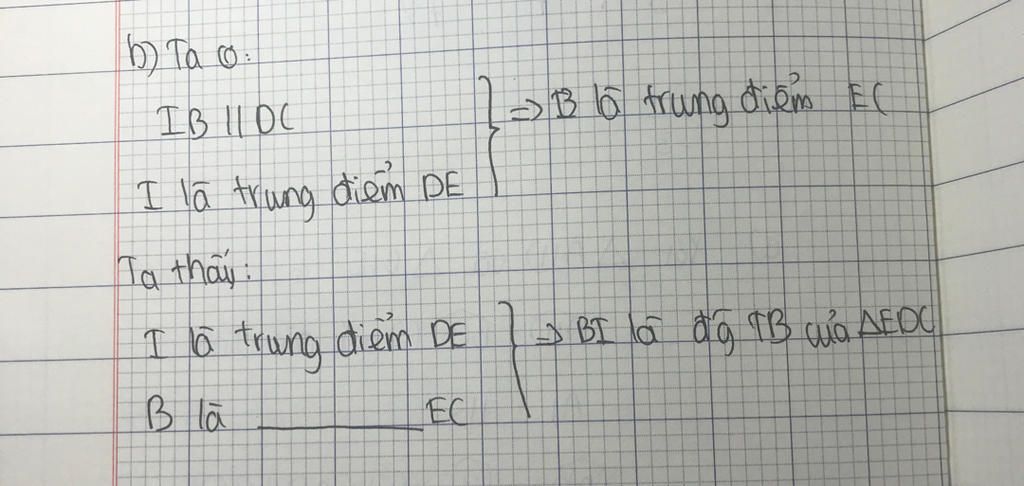 b) Ta có:
IB // DC
I là trung điểm DE
=> B là trung điểm EC
Ta thấy:
I là trung điểm DE
B là ________ EC
=> BI là đg TB của ΔEDC